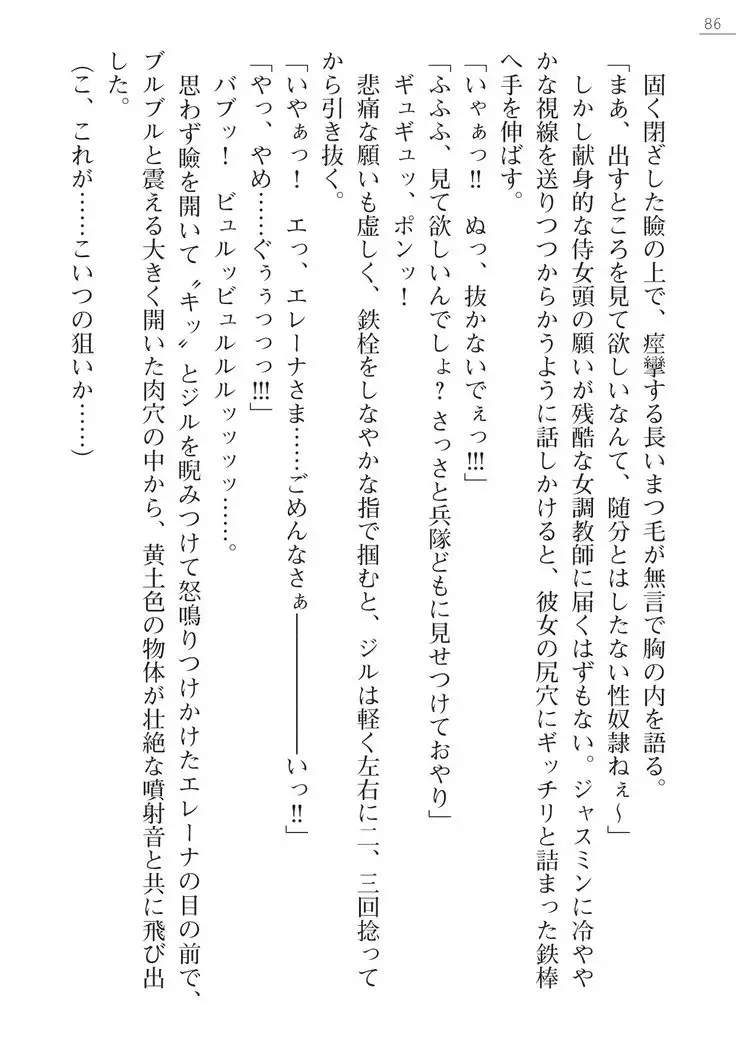 86
固く閉ざした瞼の上で、痙攣する長いまつ毛が無言で胸の内を語る。
「まあ、出すところを見て欲しいなんて、随分とはしたない性奴隷ねぇ〜」
しかし献身的な侍女頭の願いが残酷な女調教師に届くはずもない。ジャスミンに冷やや
かな視線を送りつつからかうように話しかけると、彼女の尻穴にギッチリと詰まった鉄棒
へ手を伸ばす。
「いゃぁっ!! ぬっ、抜かないでぇっ!!!」
「ふふふ、見て欲しいんでしょ? さっさと兵隊どもに見せつけておやり」
ギュギュッ、ポンッ!
悲痛な願いも虚しく、鉄栓をしなやかな指で掴むと、ジルは軽く左右に二、三回捻って
から引き抜く。
「いやぁっ! エっ、エレーナさま……ごめんなさぁ――――いっ!!」
「やっ、やめ……ぐぅぅっっっ!!!」
バブッ! ビュルッビュルルルッッッッ……。
思わず瞼を開いて〝キッ〟とジルを睨みつけて怒鳴りつけかけたエレーナの目の前で、
ブルブルと震える大きく開いた肉穴の中から、黄土色の物体が壮絶な噴射音と共に飛び出
した。
(こ、これが……こいつの狙いか……)